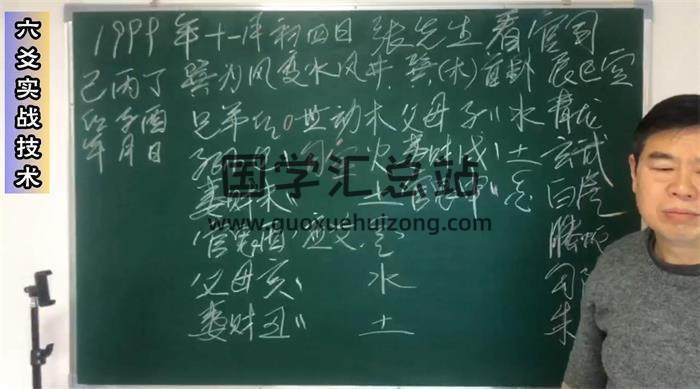 六爻实战技术
1999年十一月初四日 张先生看官司
己丙丁 巽为风变水风井 巽(木)首卦 辰巳空
卯子酉
年月日
兄弟卯 世动木 父母子 水 青龙
火 妻财戌 土 玄武
妻财未 土 官鬼申 金 白虎
官鬼酉 应爻 金
父母亥 水
妻财丑 土 朱
国学汇总站
www.guoxuehuizong.com